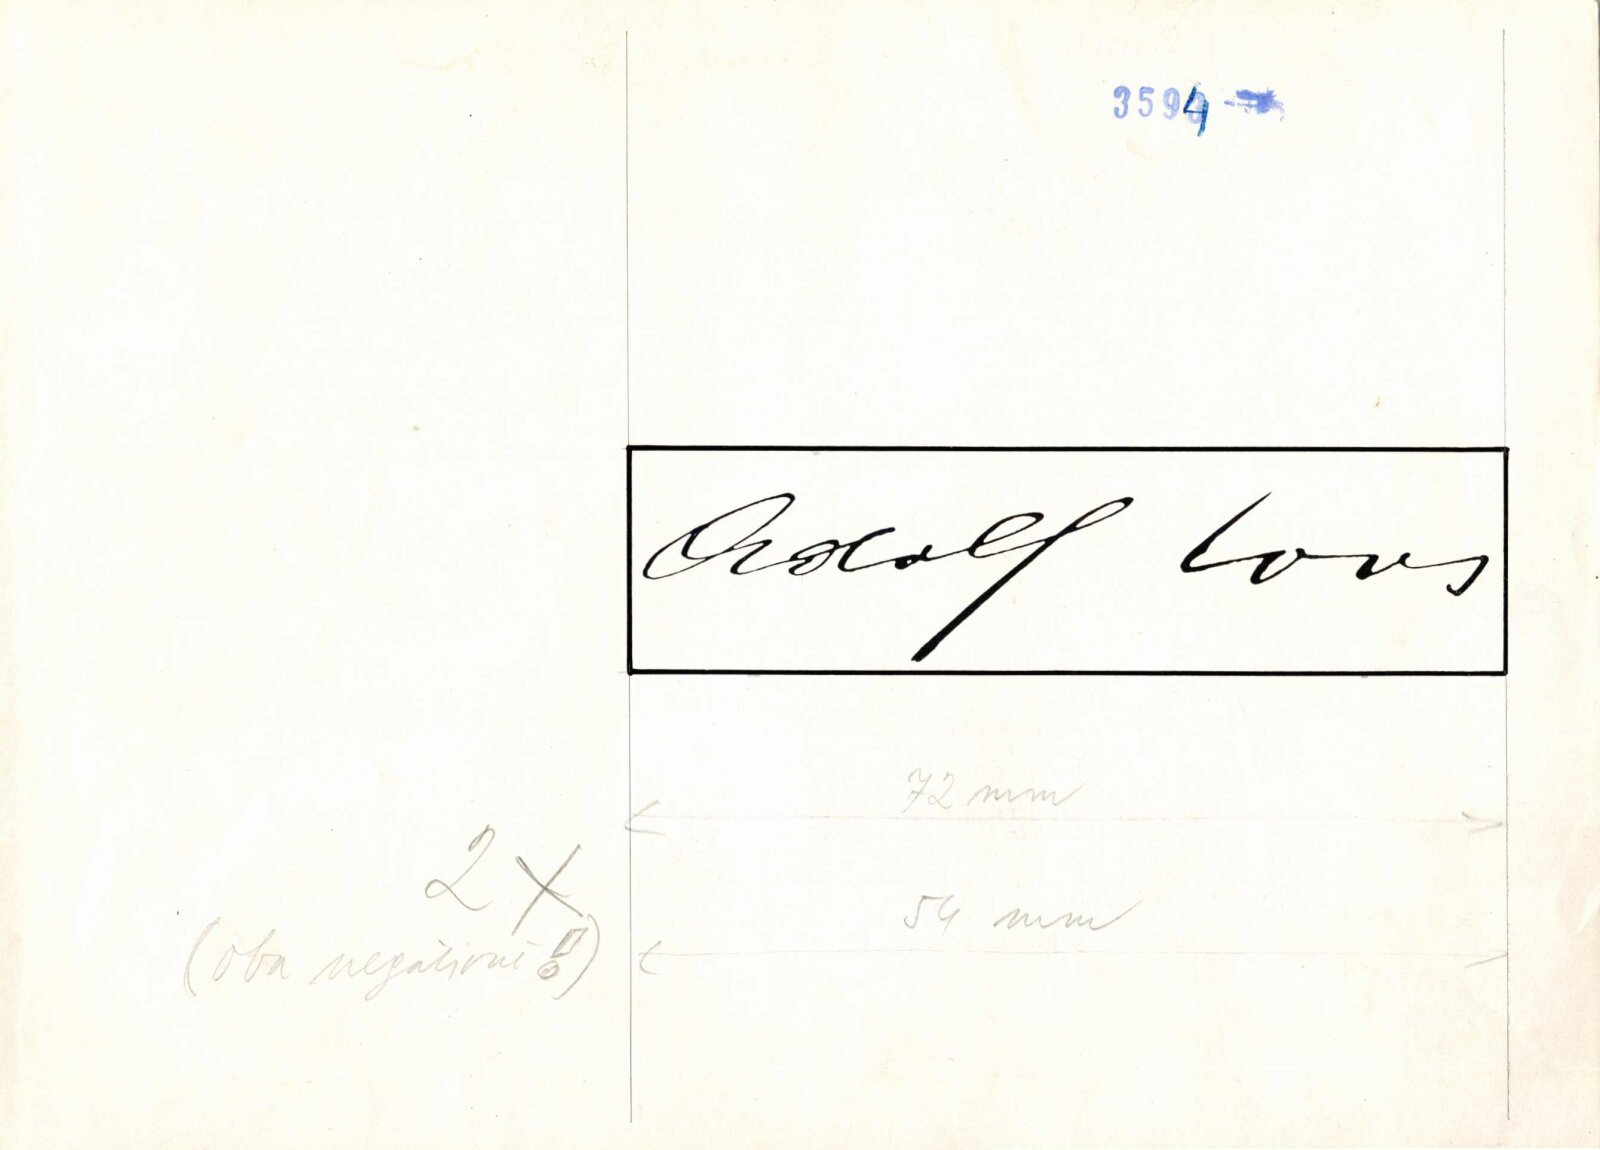 3594
Adolf Loos
72 mm
2 x
54 mm
(oba negativní!!)